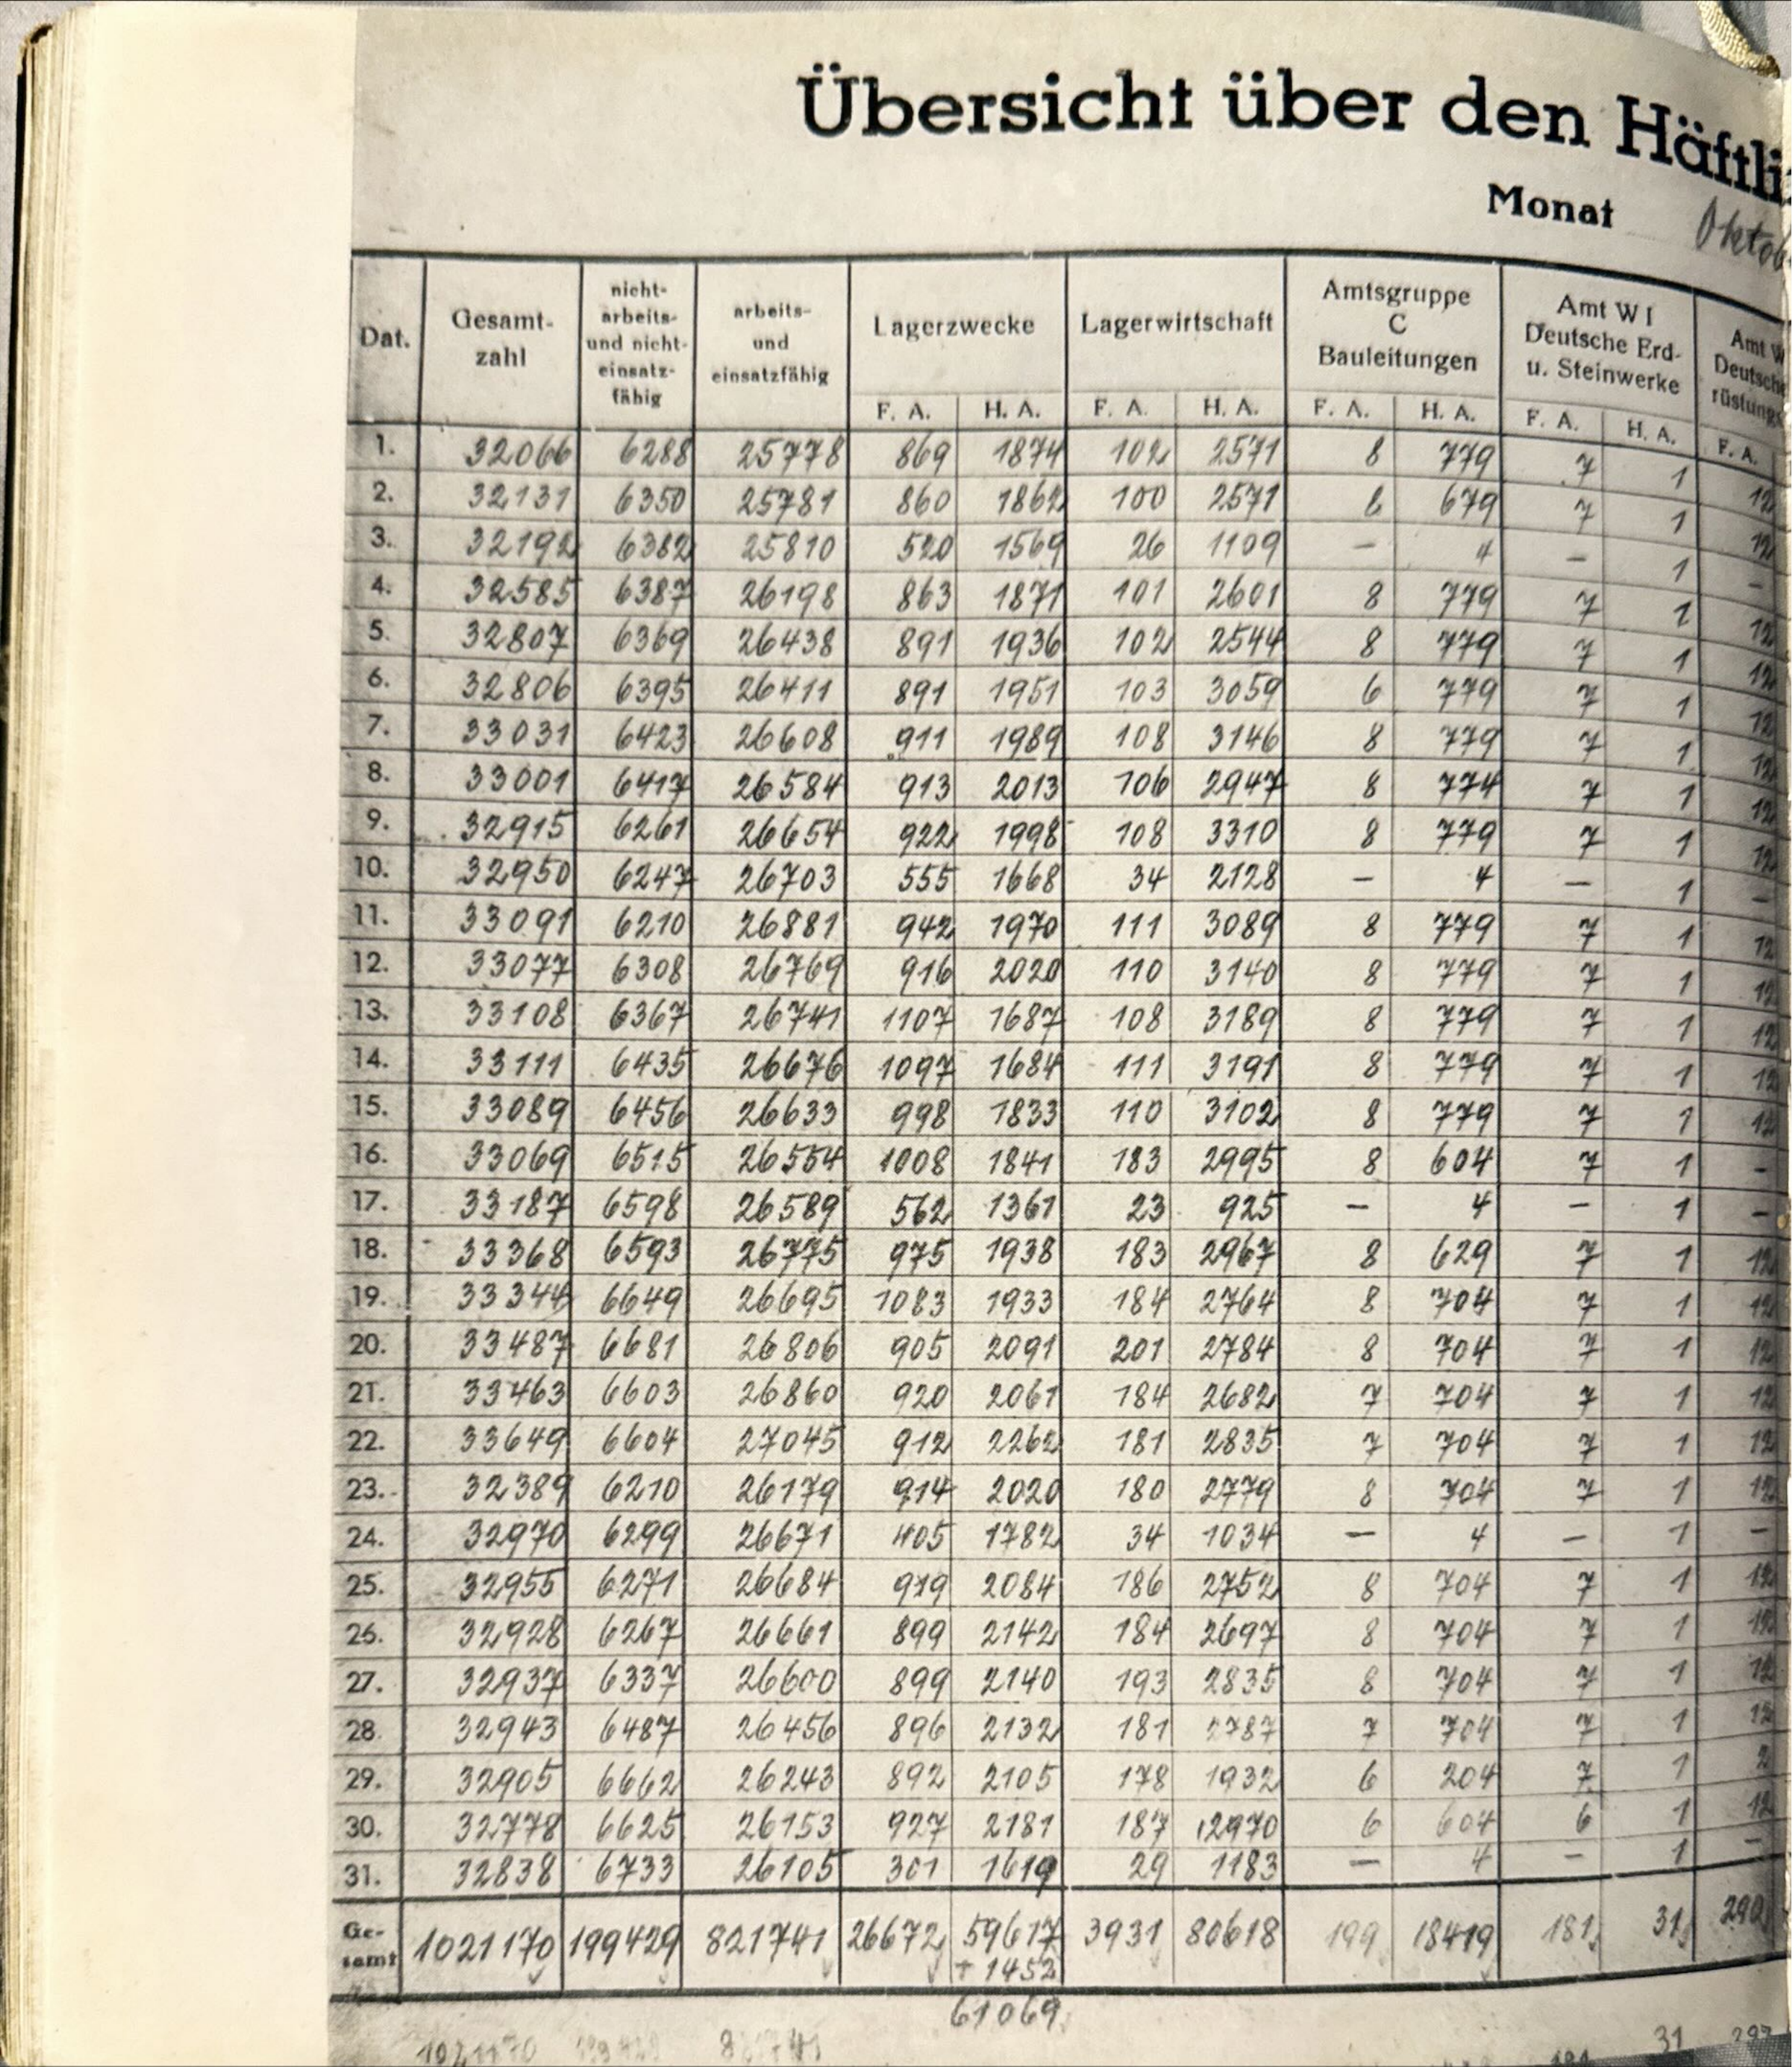 Übersicht über den Häftli
Monat Oktob
Dat. Gesamt-zahl nicht-arbeits- und nicht-einsatz-fähig arbeits- und einsatzfähig Lagerzwecke Lagerwirtschaft Amtsgruppe C Bauleitungen Amt W I Deutsche Erd- u. Steinwerke Amt W Deutsche rüstungs
F. A. H. A. F. A. H. A. F. A. H. A. F. A. H. A. F. A.
1. 32066 6288 25778 869 1874 102 2571 8 779 7 1 12
2. 32131 6350 25781 860 1862 100 2571 8 679 7 1 12
3. 32192 6382 25810 520 1569 26 1109 — 4 — 1 —
4. 32585 6387 26198 863 1871 101 2601 8 779 7 1 12
5. 32807 6369 26438 891 1936 102 2544 8 779 7 1 12
6. 32806 6395 26411 891 1951 103 3059 6 779 7 1 12
7. 33031 6423 26608 911 1989 108 3146 8 779 7 1 12
8. 33001 6417 26584 913 2013 106 2947 8 774 7 1 12
9. 32915 6261 26654 922 1998 108 3310 8 779 7 1 12
10. 32950 6247 26703 555 1668 34 2128 — 4 — 1 —
11. 33091 6210 26881 942 1970 111 3089 8 779 7 1 12
12. 33077 6308 26769 916 2020 110 3140 8 779 7 1 12
13. 33108 6367 26741 1107 1687 108 3189 8 779 7 1 12
14. 33111 6435 26676 1097 1684 111 3191 8 779 7 1 12
15. 33089 6456 26633 998 1833 110 3102 8 779 7 1 12
16. 33069 6515 26554 1008 1841 183 2995 8 604 7 1 —
17. 33187 6598 26589 562 1361 23 925 — 4 — 1 —
18. 33368 6593 26775 975 1938 183 2967 8 629 7 1 12
19. 33344 6649 26695 1083 1933 184 2764 8 704 7 1 12
20. 33487 6681 26806 905 2091 201 2784 8 704 7 1 12
21. 33463 6603 26860 920 2061 184 2682 7 704 7 1 12
22. 33649 6604 27045 912 2262 181 2835 7 704 7 1 12
23. 32389 6210 26179 914 2020 180 2779 8 704 7 1 12
24. 32970 6299 26671 405 1782 34 1034 — 4 — 1 —
25. 32955 6271 26684 919 2084 186 2752 8 704 7 1 12
26. 32928 6267 26661 899 2142 184 2697 8 704 7 1 12
27. 32937 6337 26600 899 2140 193 2835 8 704 7 1 12
28. 32943 6487 26456 896 2132 181 2787 7 704 7 1 12
29. 32905 6662 26243 892 2105 178 1932 6 204 7 1 2
30. 32778 6625 26153 927 2181 187 2970 6 604 6 1 12
31. 32838 6733 26105 301 1619 29 1183 — 4 — 1 —
Ge-samt 1021170 199429 821741 26672 59617 3931 80618 199 18419 181 31 290
+ 1452
61069
1021170 199429 821741 181 31 297